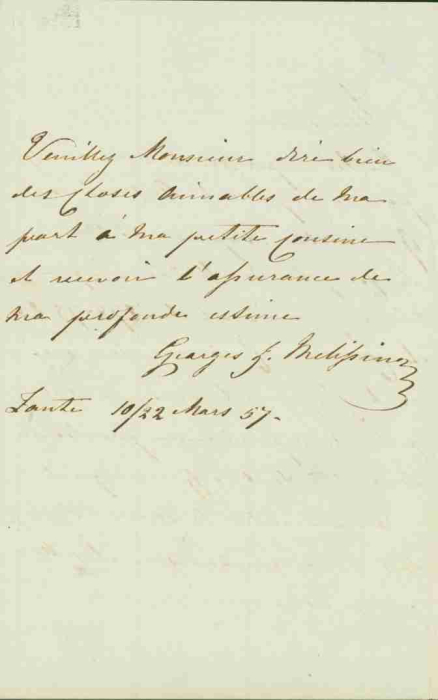 Veuillez Monsieur dire bien
des choses aimables de ma
part à ma petite cousine
et recevoir l'assurance de
ma profonde estime
Georges J. Melissinos
Zante 10/22 Mars 57.